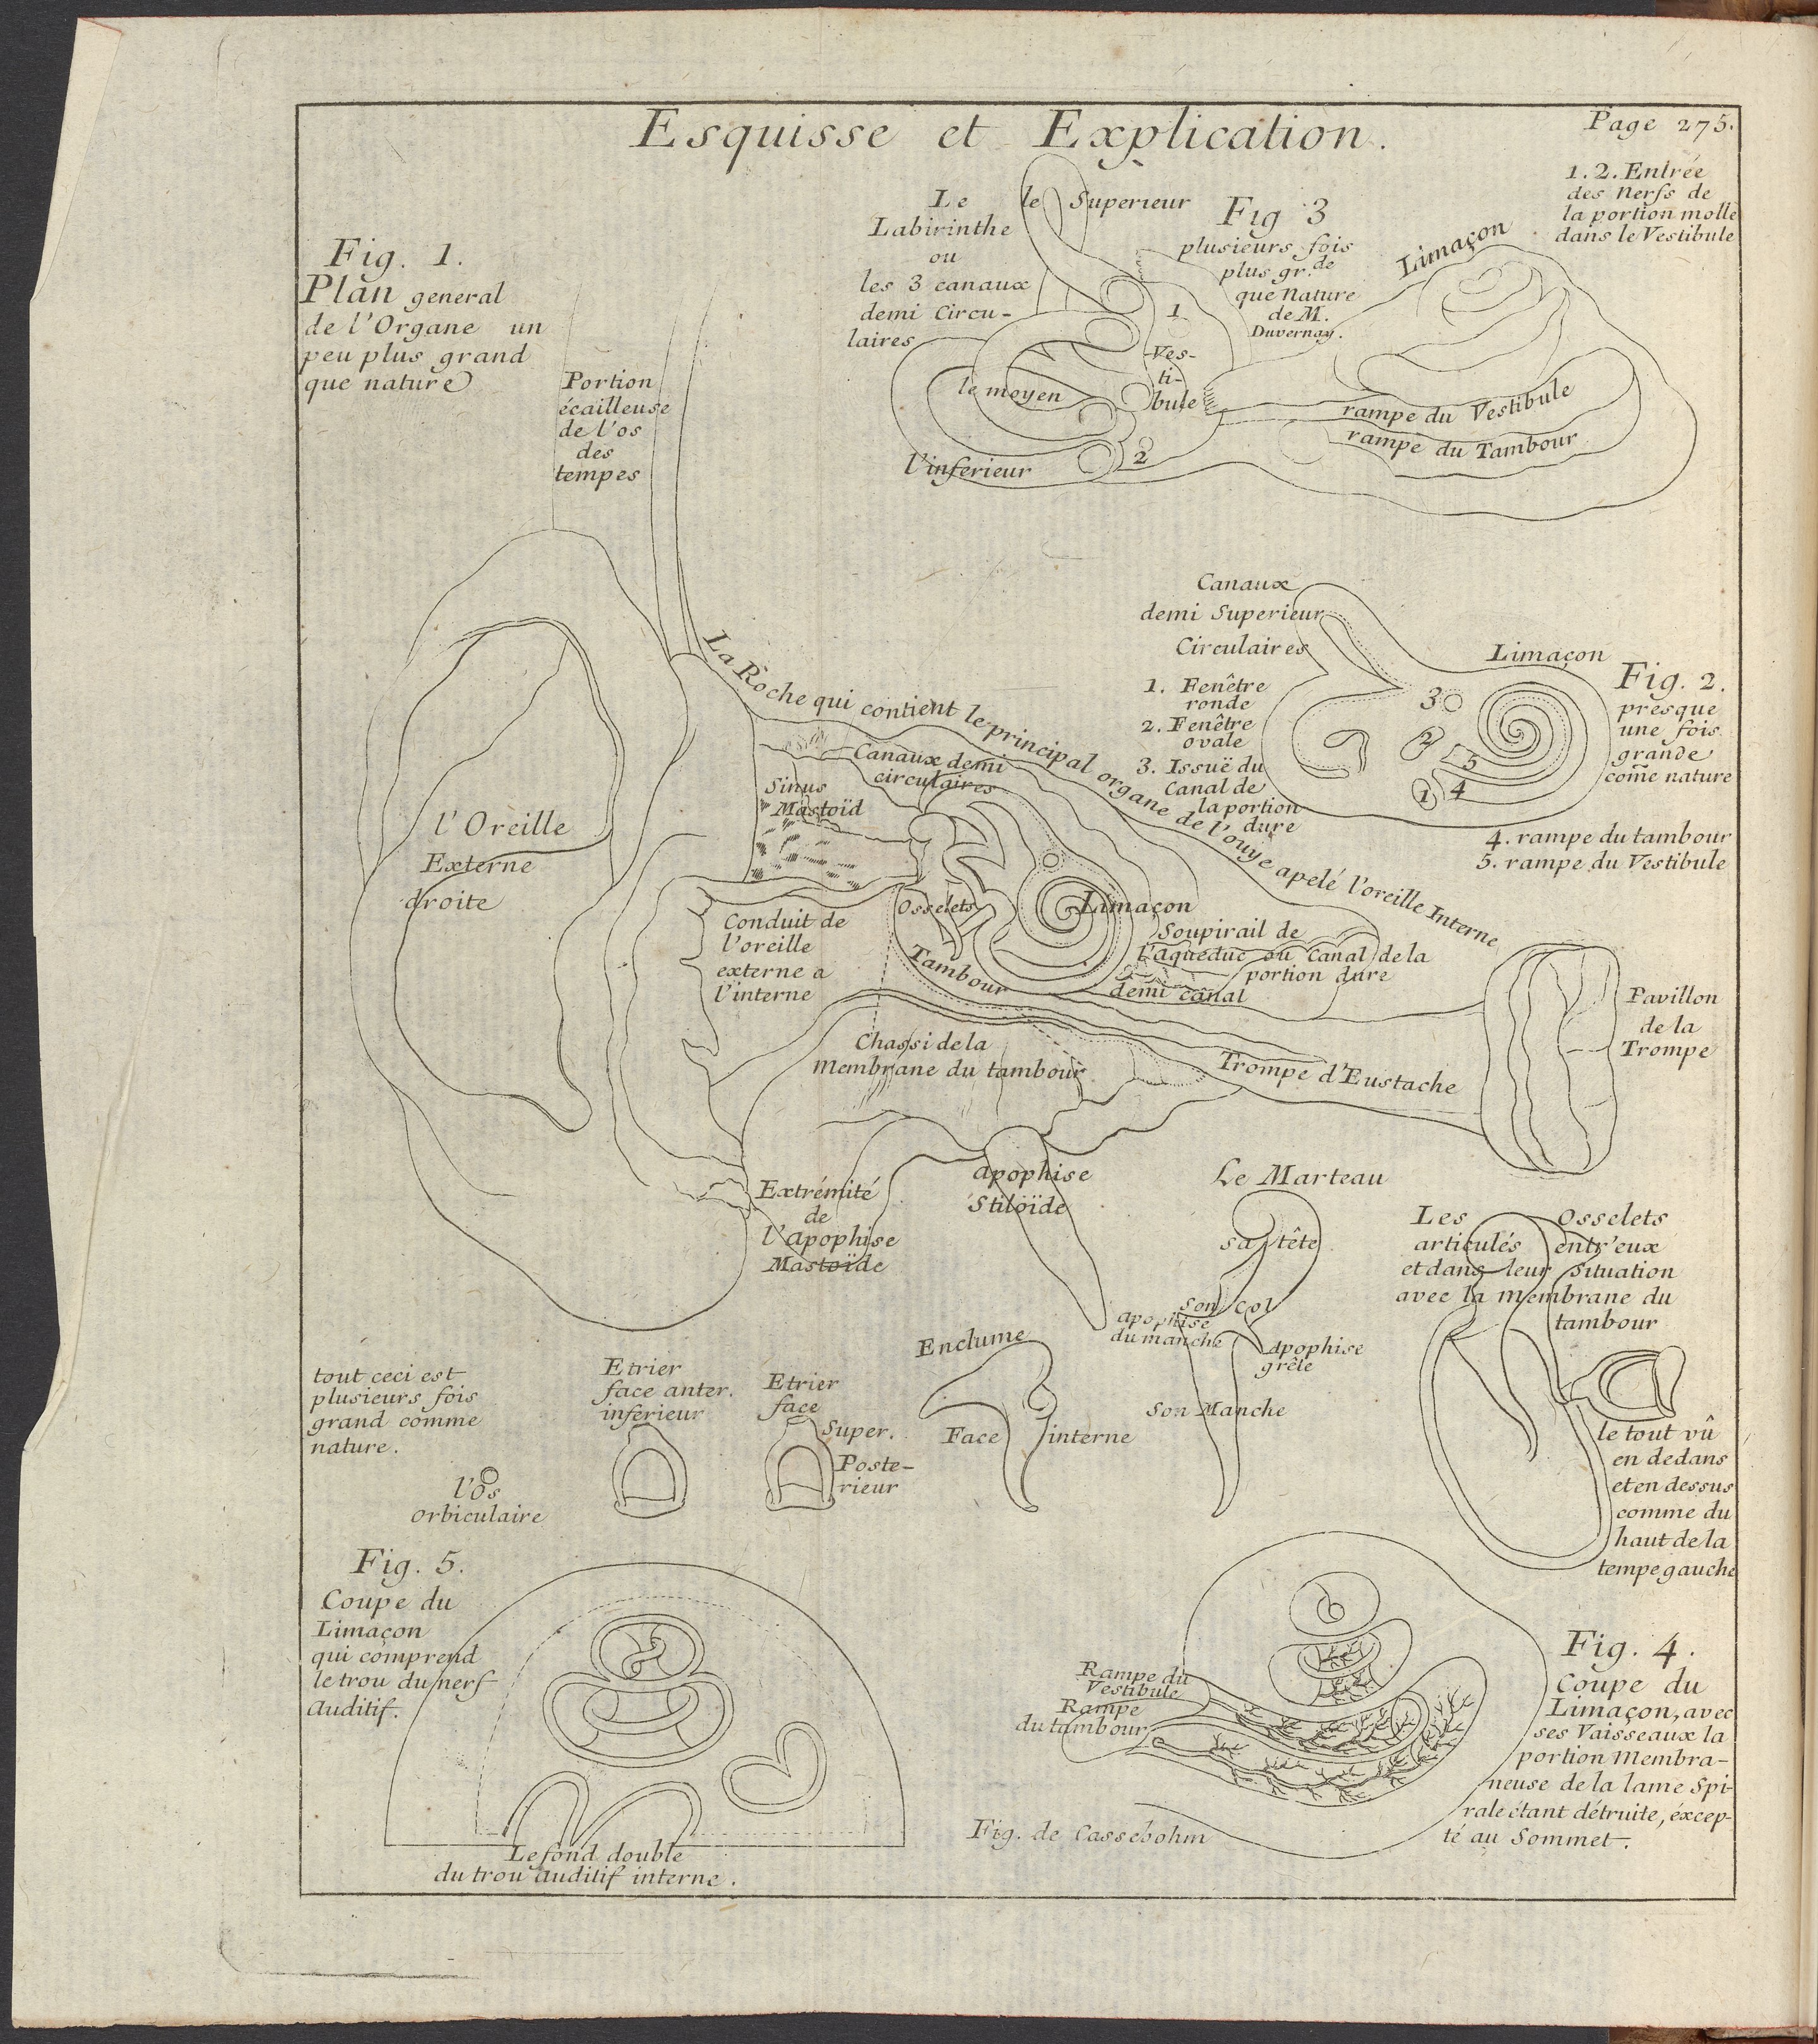 Esquisse et Explication.
Page 275.
Fig. 1.
Plan general
de l'Organe un
peu plus grand
que nature
Portion
écailleuse
de l'os
des
tempes
Le
Labirinthe
ou
les 3 canaux
demi Circu-
laires
le Superieur
le moyen
l'inferieur
1
Ves-
ti-
bule
2
Fig 3
plusieurs fois
plus gr.de
que Nature
de M.
Duvernay.
Limaçon
rampe du Vestibule
rampe du Tambour
1. 2. Entrée
des Nerfs de
la portion molle
dans le Vestibule
Canaux
demi Superieur
Circulaires
1. Fenêtre
ronde
2. Fenêtre
ovale
3. Issuë du
Canal de
la portion
dure
Limaçon
3
2
5
1 4
Fig. 2.
presque
une fois
grande
come nature
4. rampe du tambour
5. rampe du Vestibule
La Roche qui contient le principal organe de l'ouye apelé l'oreille Interne
Canaux demi
circulaires
Sinus
Mastoïd
l'Oreille
Externe
droite
Conduit de
l'oreille
externe a
l'interne
Osselets
Limaçon
Tambour
Soupirail de
l'aqueduc ou Canal de la
portion dure
demi canal
Chassi de la
Membrane du tambour
Trompe d'Eustache
Pavillon
de la
Trompe
Extrémité
de
l'Apophise
Mastoïde
Apophise
Stiloïde
Le Marteau
sa tête
son col
Apophise
du manche
Apophise
grêle
Son Manche
Les Osselets
articulés entr'eux
et dans leur Situation
avec la membrane du
tambour
le tout vû
en dedans
et en dessus
comme du
haut de la
tempe gauche
Enclume
Face interne
tout ceci est
plusieurs fois
grand comme
nature.
l'Os
orbiculaire
Etrier
face anter.
inferieur
Etrier
face
Super.
Poste-
rieur
Fig. 5.
Coupe du
Limaçon
qui comprend
le trou du nerf
Auditif.
Le fond double
du trou Auditif interne.
Rampe du
Vestibule
Rampe
du tambour
Fig. de Cassebohm
Fig. 4.
Coupe du
Limaçon, avec
ses Vaisseaux la
portion Membra-
neuse de la lame Spi-
rale étant détruite, éxcep-
té au Sommet.